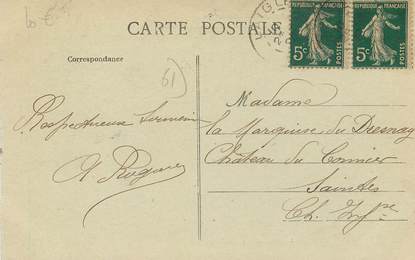 CARTE POSTALE
REPUBLIQUE FRANÇAISE
REPUBLIQUE FRANÇAISE
5c POSTES
5c POSTES
Correspondance
61
Madame
la Marquise du Dresnay
Château du Cormier
Saintes
Ch. Infre
Respectueux
A